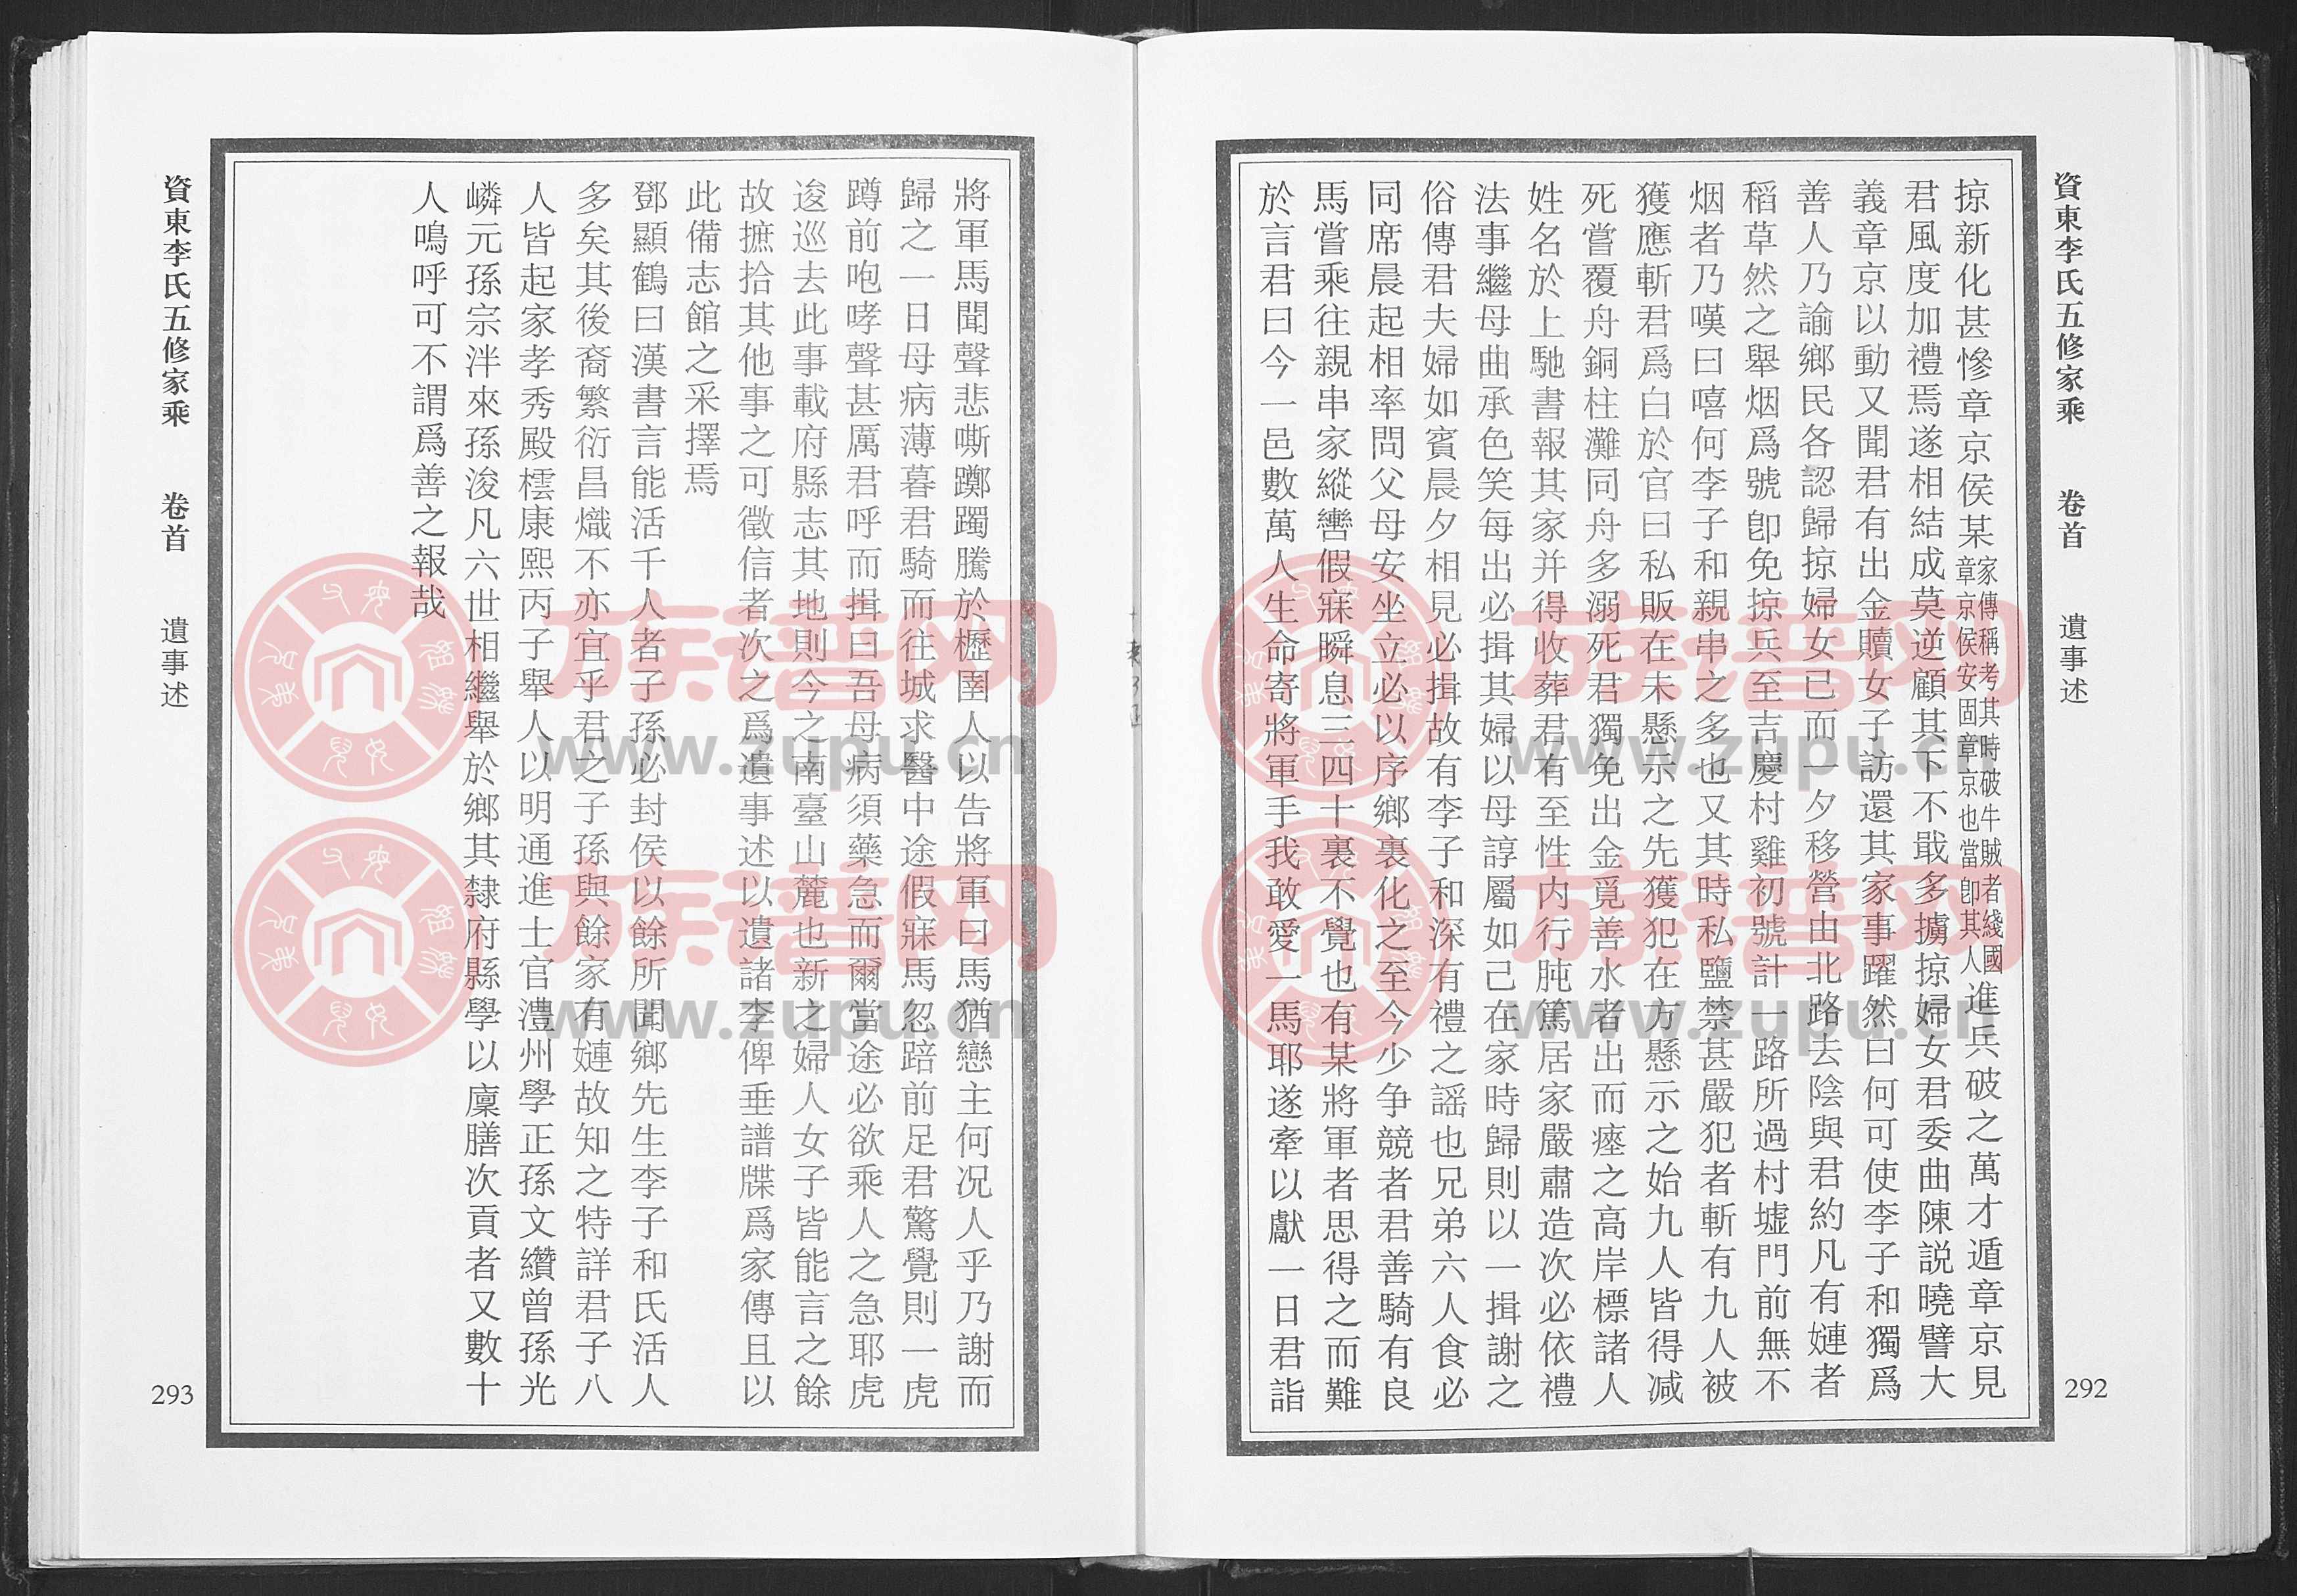 資東李氏五修家乘 卷首 遺事述
292
掠新化甚慘章京侯某家傳稱考其時破牛賊者綫國章京侯安固章京也當卽其人進兵破之萬才遁章京見
君風度加禮焉遂相結成莫逆顧其下不戢多擄掠婦女君委曲陳説曉譬大
義章京以動又聞君有出金贖女子訪還其家事躍然曰何可使李子和獨爲
善人乃諭鄉民各認歸掠婦女已而一夕移營由北路去陰與君約凡有嫤者
稻草然之舉烟爲號卽免掠兵至吉慶村雞初號計一路所過村墟門前無不
烟者乃嘆曰嘻何李子和親串之多也又其時私鹽禁甚嚴犯者斬有九人被
獲應斬君爲白於官曰私販在未懸示之先獲犯在方懸示之始九人皆得減
死嘗覆舟銅柱灘同舟多溺死君獨免出金覓善水者出而瘞之高岸標諸人
姓名於上馳書報其家并得收葬君有至性内行肫篤居家嚴肅造次必依禮
法事繼母曲承色笑每出必揖其婦以母諄屬如己在家時歸則以一揖謝之
俗傳君夫婦如賓晨夕相見必揖故有李子和深有禮之謡也兄弟六人食必
同席晨起相率問父母安坐立必以序鄉裏化之至今少争競者君善騎有良
馬嘗乘往親串家縱轡假寐瞬息三四十裏不覺也有某將軍者思得之而難
於言君曰今一邑數萬人生命寄將軍手我敢愛一馬耶遂牽以獻一日君詣
將軍馬聞聲悲嘶躑躅騰於櫪圉人以告將軍曰馬猶戀主何况人乎乃謝而
歸之一日母病薄暮君騎而往城求醫中途假寐馬忽踣前足君驚覺則一虎
蹲前咆哮聲甚厲君呼而揖曰吾母病須藥急而爾當途必欲乘人之急耶虎
逡巡去此事載府縣志其地則今之南臺山麓也新之婦人女子皆能言之餘
故摭拾其他事之可徵信者次之爲遺事述以遺諸李俾垂譜牒爲家傳且以
此備志館之采擇焉
鄧顯鶴曰漢書言能活千人者子孫必封侯以餘所聞鄉先生李子和氏活人
多矣其後裔繁衍昌熾不亦宜乎君之子孫與餘家有嫤故知之特詳君子八
人皆起家孝秀殿櫄康熙丙子舉人以明通進士官澧州學正孫文纘曾孫光
嶙元孫宗泮來孫浚凡六世相繼舉於鄉其隸府縣學以廩膳次貢者又數十
人鳴呼可不謂爲善之報哉
資東李氏五修家乘 卷首 遺事述
293
族谱网
www.zupu.cn
族谱网
www.zupu.cn
族谱网
www.zupu.cn
族谱网
www.zupu.cn